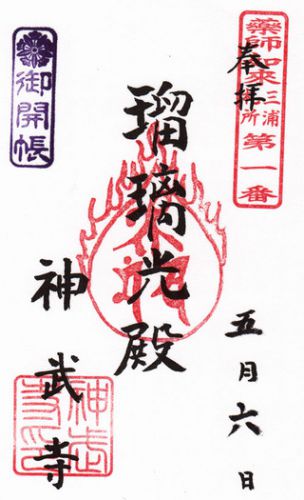 藥師如來三浦
札所第一番
奉拝
瑠璃光殿
五月六日
神武寺
御開帳
神武
寺印